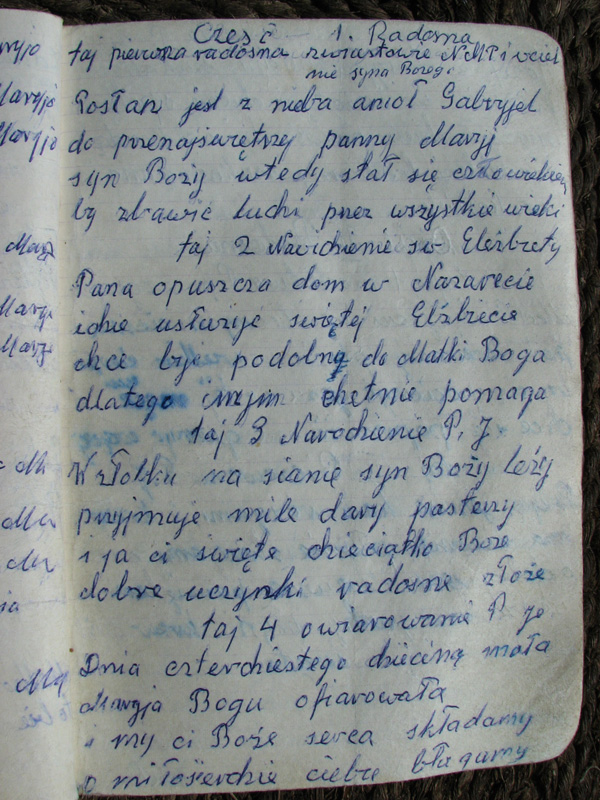 Część — 1. Radosna
taj pierwsza radosna zwiastowie N.M.P i wciel
nie syna Bozego
Posłan jest z nieba anioł Gabryjel
do przenajswiętrzej panny Maryj
syn Boży wtedy stał się człowiekiem
by zbawić ludzi przez wszystkie wieki
taj 2 Nawidzienie św Elżbiety
Pana opuszcza dom w Nazarecie
idzie usłużyć świętej Elżbiecie
chce być podobną do Matki Boga
dlatego innym chętnie pomaga
taj 3 Narodzienie P. J
W rzłobku na sianie syn Boży leży
przyjmuje mile dary pasterzy
i ja ci święte dzieciątko Boże
dobre uczynki radosne złoże
taj 4 owiarowanie P. je
Dnia czterdziestego dziecinę mała
Maryja Bogu ofiarowała
i my ci Boże serca składamy
o miłosierdzie ciebie błagamy